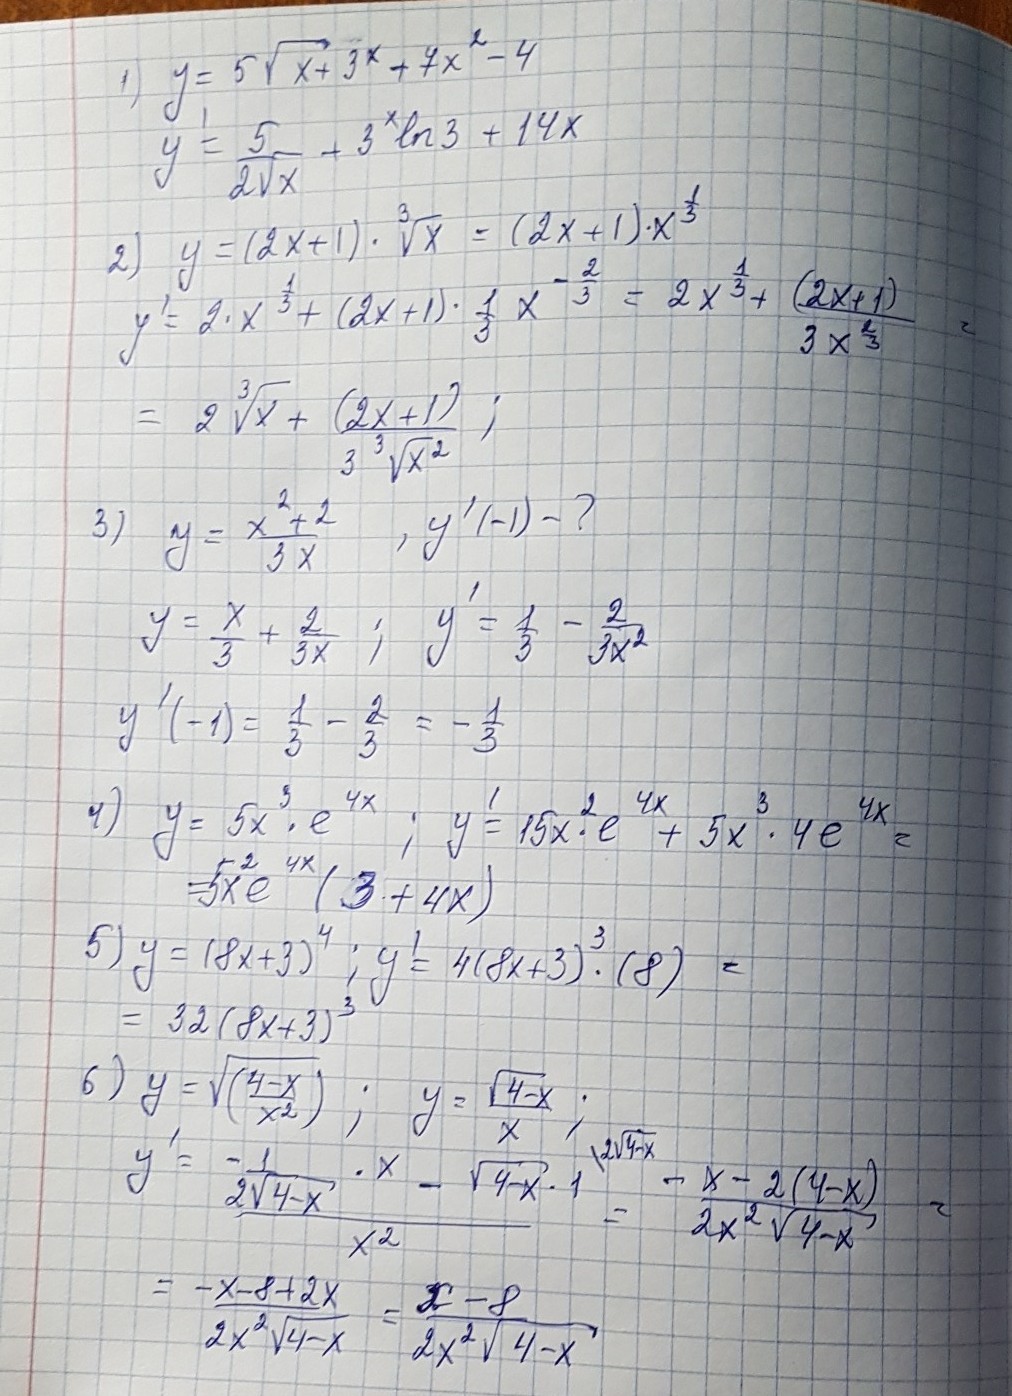 1) y = 5√x + 3^x + 7x² - 4
y' = 5/(2√x) + 3^x ln3 + 14x
2) y = (2x+1) · ∛x = (2x+1) · x^(1/3)
y' = 2 · x^(1/3) + (2x+1) · 1/3 x^(-2/3) = 2x^(1/3) + (2x+1)/(3x^(2/3)) =
= 2∛x + (2x+1)/(3∛x²) ;
3) y = (x²+2)/(3x) , y'(-1) - ?
y = x/3 + 2/(3x) ; y' = 1/3 - 2/(3x²)
y'(-1) = 1/3 - 2/3 = -1/3
4) y = 5x³ · e^(4x) ; y' = 15x² · e^(4x) + 5x³ · 4e^(4x) =
= 5x²e^(4x) (3 + 4x)
5) y = (8x+3)⁴ ; y' = 4(8x+3)³ · (8) =
= 32(8x+3)³
6) y = √((4-x)/x²) ; y = √(4-x)/x ;
y' = (-1/(2√(4-x)) · x - √(4-x) · 1 \2√(4-x))/x² = (-x - 2(4-x))/(2x²√(4-x)) =
= (-x-8+2x)/(2x²√(4-x)) = (x-8)/(2x²√(4-x))